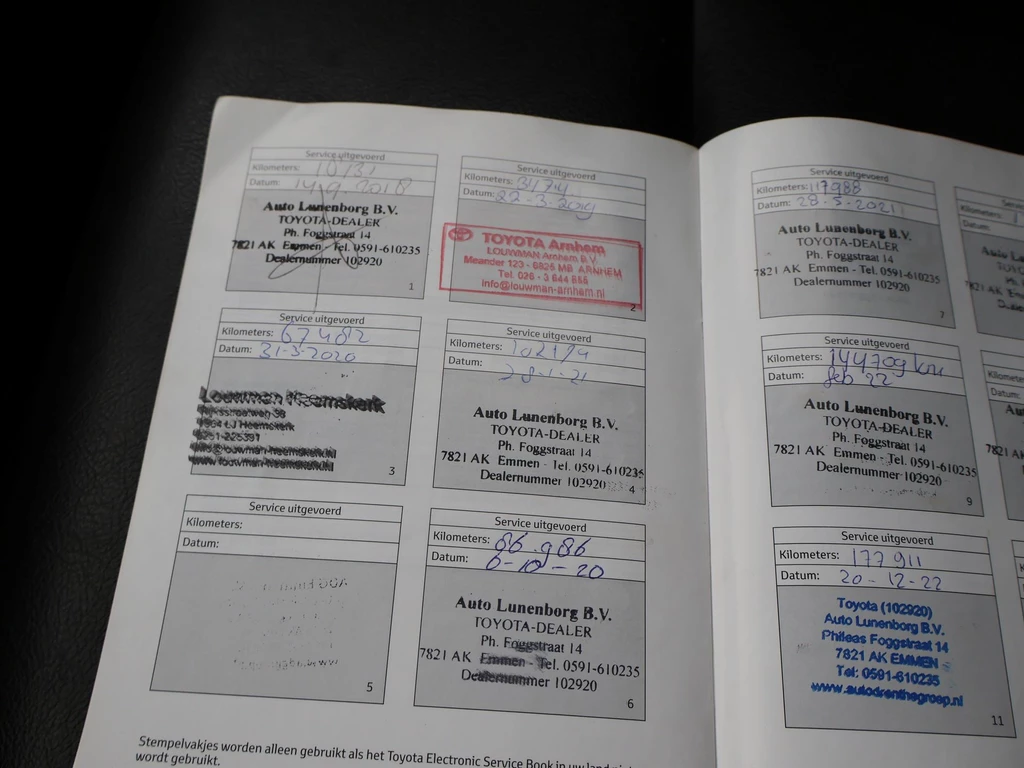 Service uitgevoerd
Kilometers: 10131
Datum: 14-9-2018
Auto Lunenborg B.V.
TOYOTA-DEALER
Ph. Foggstraat 14
7821 AK Emmen - Tel. 0591-610235
Dealernummer 102920
1
Service uitgevoerd
Kilometers:
Datum: 22-3-2019
TOYOTA Arnhem
LOUWMAN Arnhem B.V.
Meander 123 - 6825 MB ARNHEM
Tel. 026 - 3 644 655
info@louwman-arnhem.nl
2
Service uitgevoerd
Kilometers: 67482
Datum: 31-3-2020
Louwman Heemskerk
3
Service uitgevoerd
Kilometers: 102179
Datum: 28-1-21
Auto Lunenborg B.V.
TOYOTA-DEALER
Ph. Foggstraat 14
7821 AK Emmen - Tel. 0591-610235
Dealernummer 102920
4
Service uitgevoerd
Kilometers:
Datum:
5
Service uitgevoerd
Kilometers: 86.986
Datum: 6-10-20
Auto Lunenborg B.V.
TOYOTA-DEALER
Ph. Foggstraat 14
7821 AK Emmen - Tel. 0591-610235
Dealernummer 102920
6
Stempelvakjes worden alleen gebruikt als het Toyota Electronic Service Book in uw land
wordt gebruikt.
Service uitgevoerd
Kilometers: 117988
Datum: 28-5-2021
Auto Lunenborg B.V.
TOYOTA-DEALER
Ph. Foggstraat 14
7821 AK Emmen - Tel. 0591-610235
Dealernummer 102920
7
Service uitgevoerd
Kilometers: 144709 km
Datum: feb 22
Auto Lunenborg B.V.
TOYOTA-DEALER
Ph. Foggstraat 14
7821 AK Emmen - Tel. 0591-610235
Dealernummer 102920
9
Service uitgevoerd
Kilometers: 177911
Datum: 20-12-22
Toyota (102920)
Auto Lunenborg B.V.
Phileas Foggstraat 14
7821 AK EMMEN
Tel: 0591-610235
www.autodrenthegroep.nl
11
Kilometers
Datum:
7821 AK
Kilometer
Datum:
7821 A